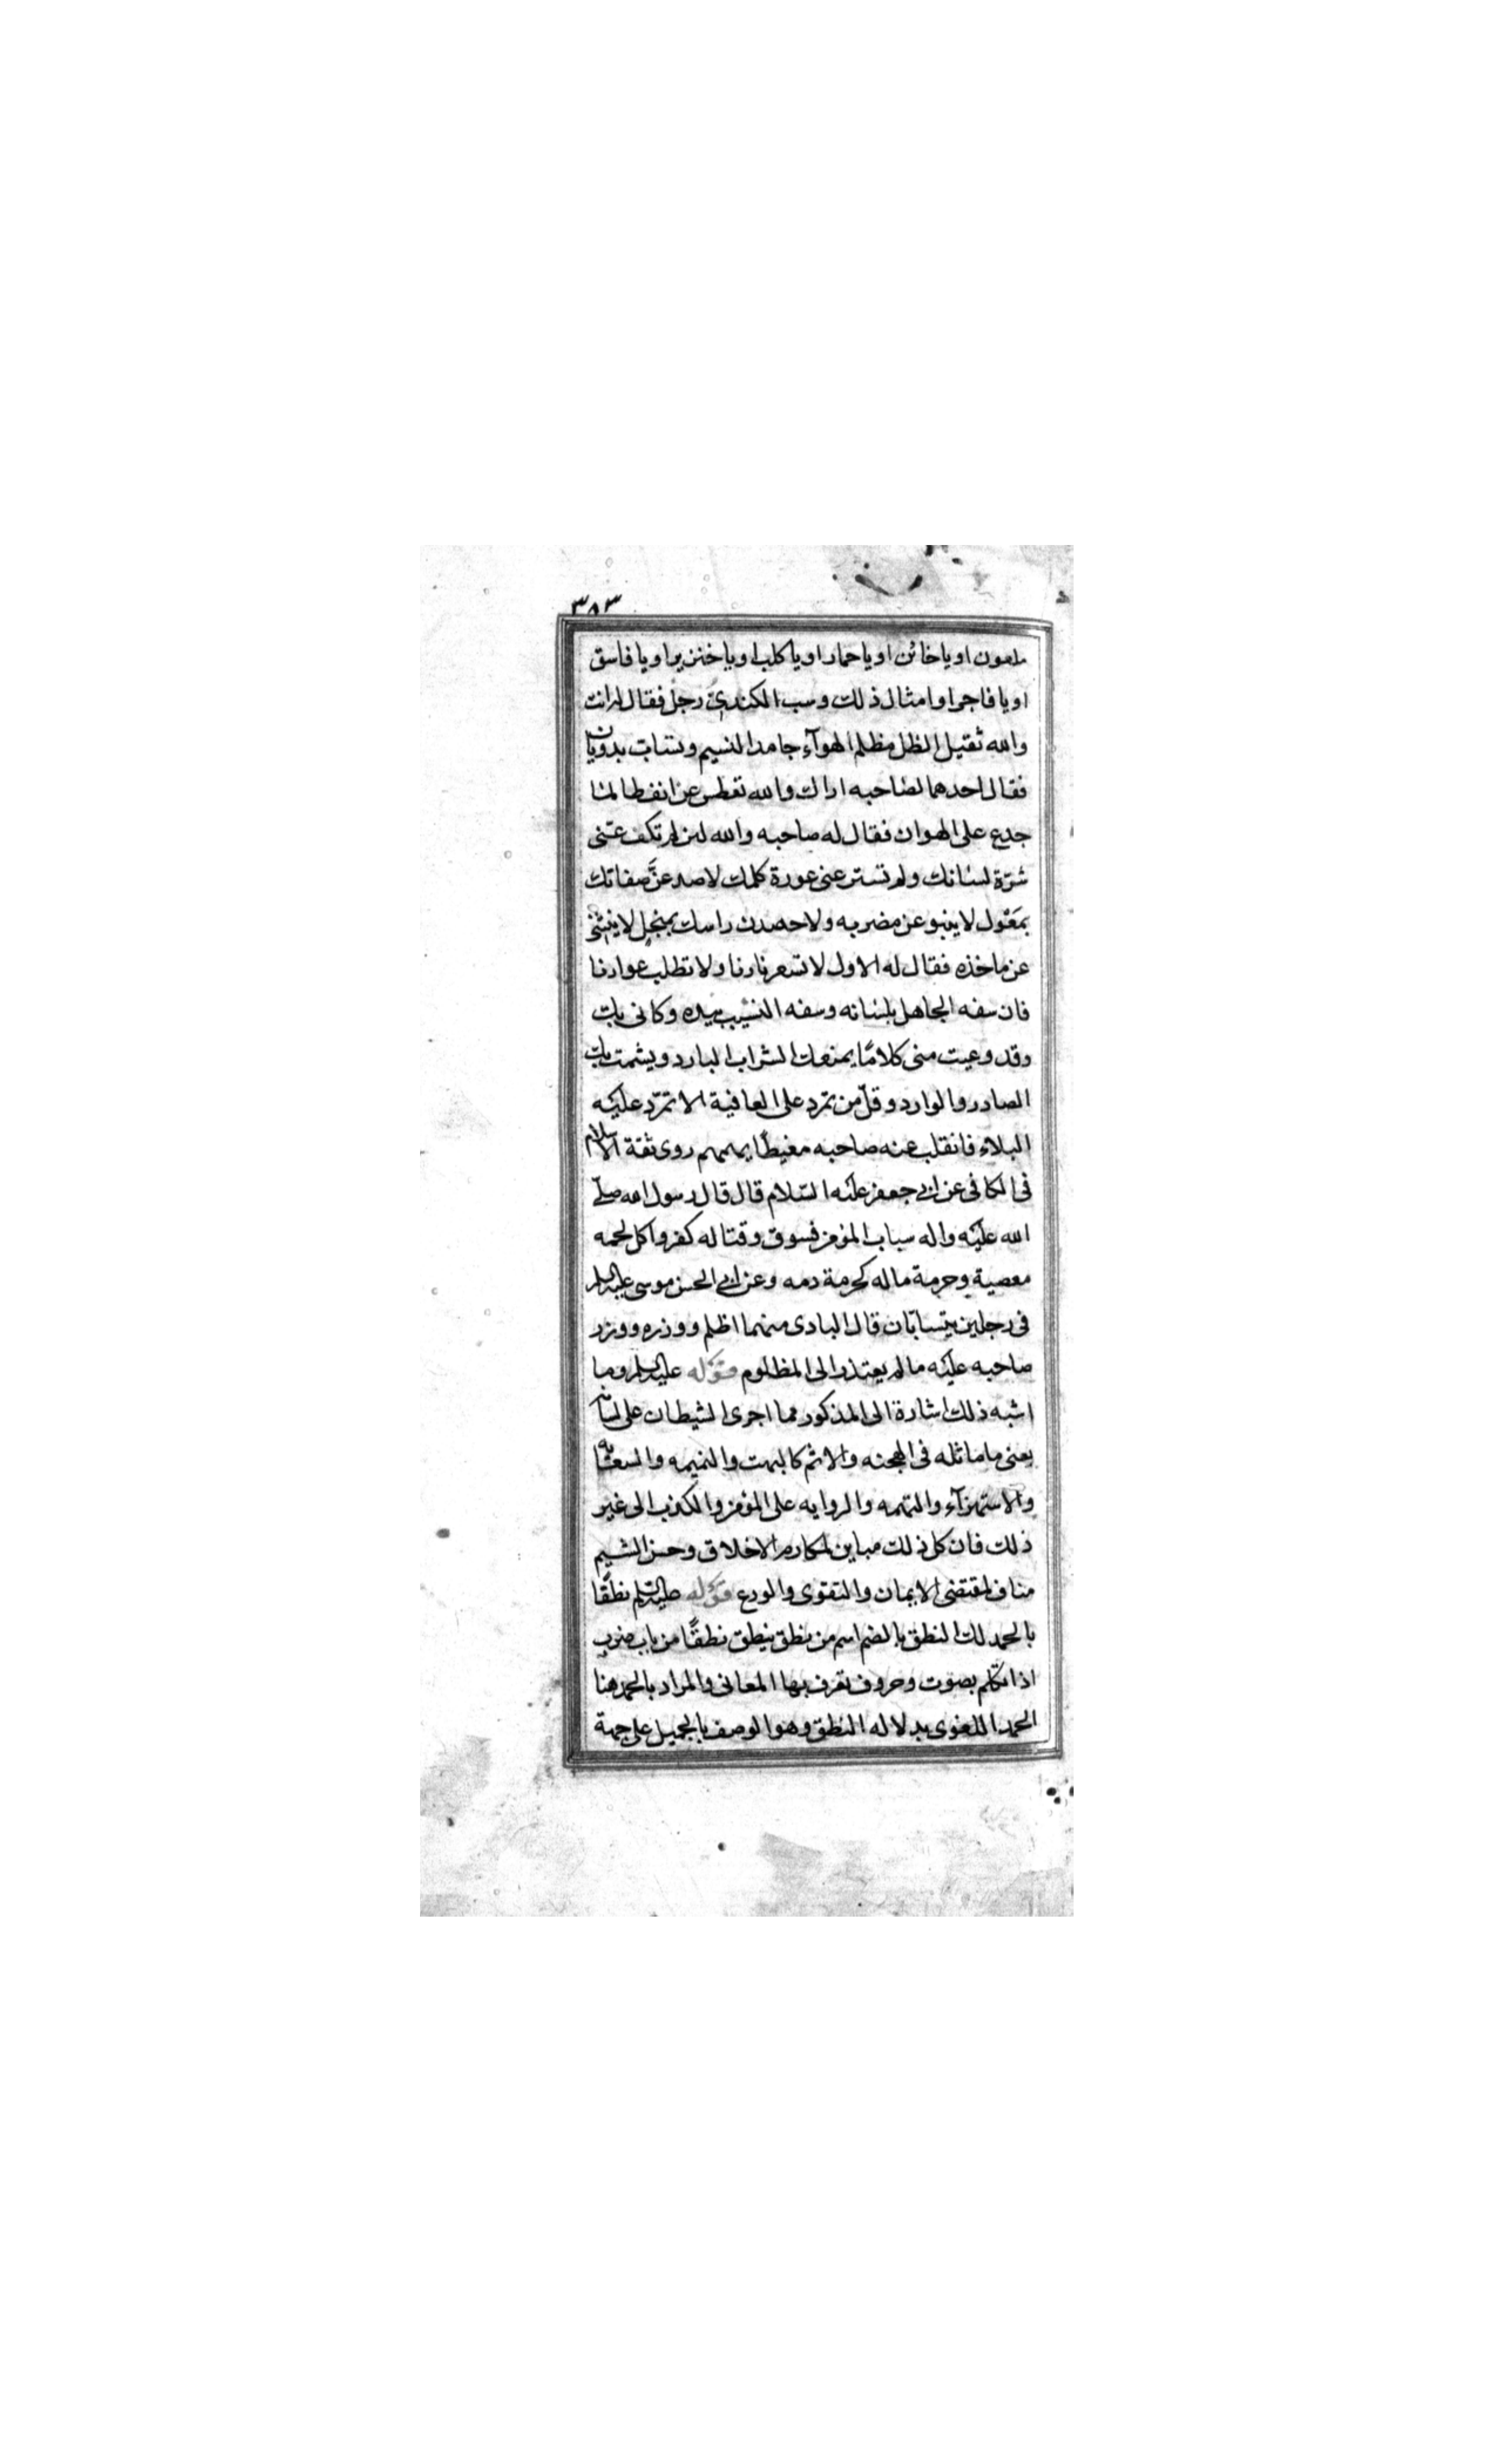 ٣٨٣
ملعون او يا خائن او يا حمار او يا كلب او يا خنزير او يا فاسق
او يا فاجر او امثال ذلك وسب الكندىّ رجل فقال له انت
والله ثقيل الظل مظلم الهوآء جامد النسيم وتسابّ بدويان
فقال احدهما لصاحبه اراك والله تعطس عن انف طالما
جدع على الهوان فقال له صاحبه والله لئن لم تكف عنّى
شرّة لسانك ولم تستر عنى عورة كلمك لاصدعنّ صفاتك
بمَعْول لا ينبو عن مضربه ولاحصدن راسك بمنجل لا ينثنى
عن ماخذه فقال له الاول لا تسعر نارنا ولا تطلب عوارنا
فان سفه الجاهل بلسانه وسفه النسيب بيده وكانى بك
وقد وعيت منى كلامًا يمنعك الشراب البارد ويشمت بك
الصادر والوارد وقلّ من تمرد على العافية الا تمرّد عليه
البلاء فانقلب عنه صاحبه مغيظًا يهمهم روى ثقة الاسلام
فى الكافى عن ابى جعفر عليه السّلام قال قال رسول الله صلّى
الله عليه واله سباب المؤمن فسوق وقتاله كفر واكل لحمه
معصية وحرمة ماله كحرمة دمه وعن ابى الحسن موسى عليه السلم
فى رجلين يتسابّان قال البادى منهما اظلم ووزره ووزر
صاحبه عليه ما لم يعتذر الى المظلوم قوله عليه السلم وما
اشبه ذلك اشارة الى المذكور مما اجرى الشيطان على لسانه
يعنى ما ماثله فى الهجنه والاثم كالبهت والنميمه والسعايه
والاستهزآء والتهمه والروايه على المؤمن والكذب الى غير
ذلك فان كل ذلك مباين لمكارم الاخلاق وحسن الشيم
مناف لمقتضى الايمان والتقوى والورع قوله عليه السّلم نطقًا
بالحمد لك النطق بالضم اسم من نطق ينطق نطقًا من باب ضرب
اذا تكلم بصوت وحروف تعرف بها المعانى والمراد بالحمد هنا
الحمد اللغوى بدلاله النطق وهو الوصف بالجميل على جهة